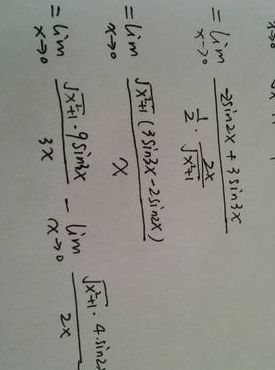 = lim x→0 (-2sin2x + 3sin3x) / (1/2 · 2x/√(x²+1))
= lim x→0 √(x²+1) (3sin3x - 2sin2x) / x
= lim x→0 √(x²+1) · 9sin3x / 3x - lim x→0 √(x²+1) · 4·sin2x / 2x